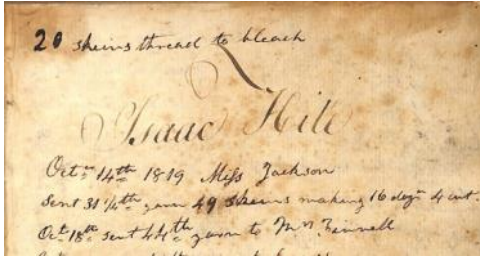 20 skeins thread to bleach
Isaac Hill
Octr 14th 1819 Miss Jackson
Sent 31 ¼ th yarn 49 skeins making 16 dozn 4 cut.
Oct. 18th sent 44th yarn to Mrs Finnell